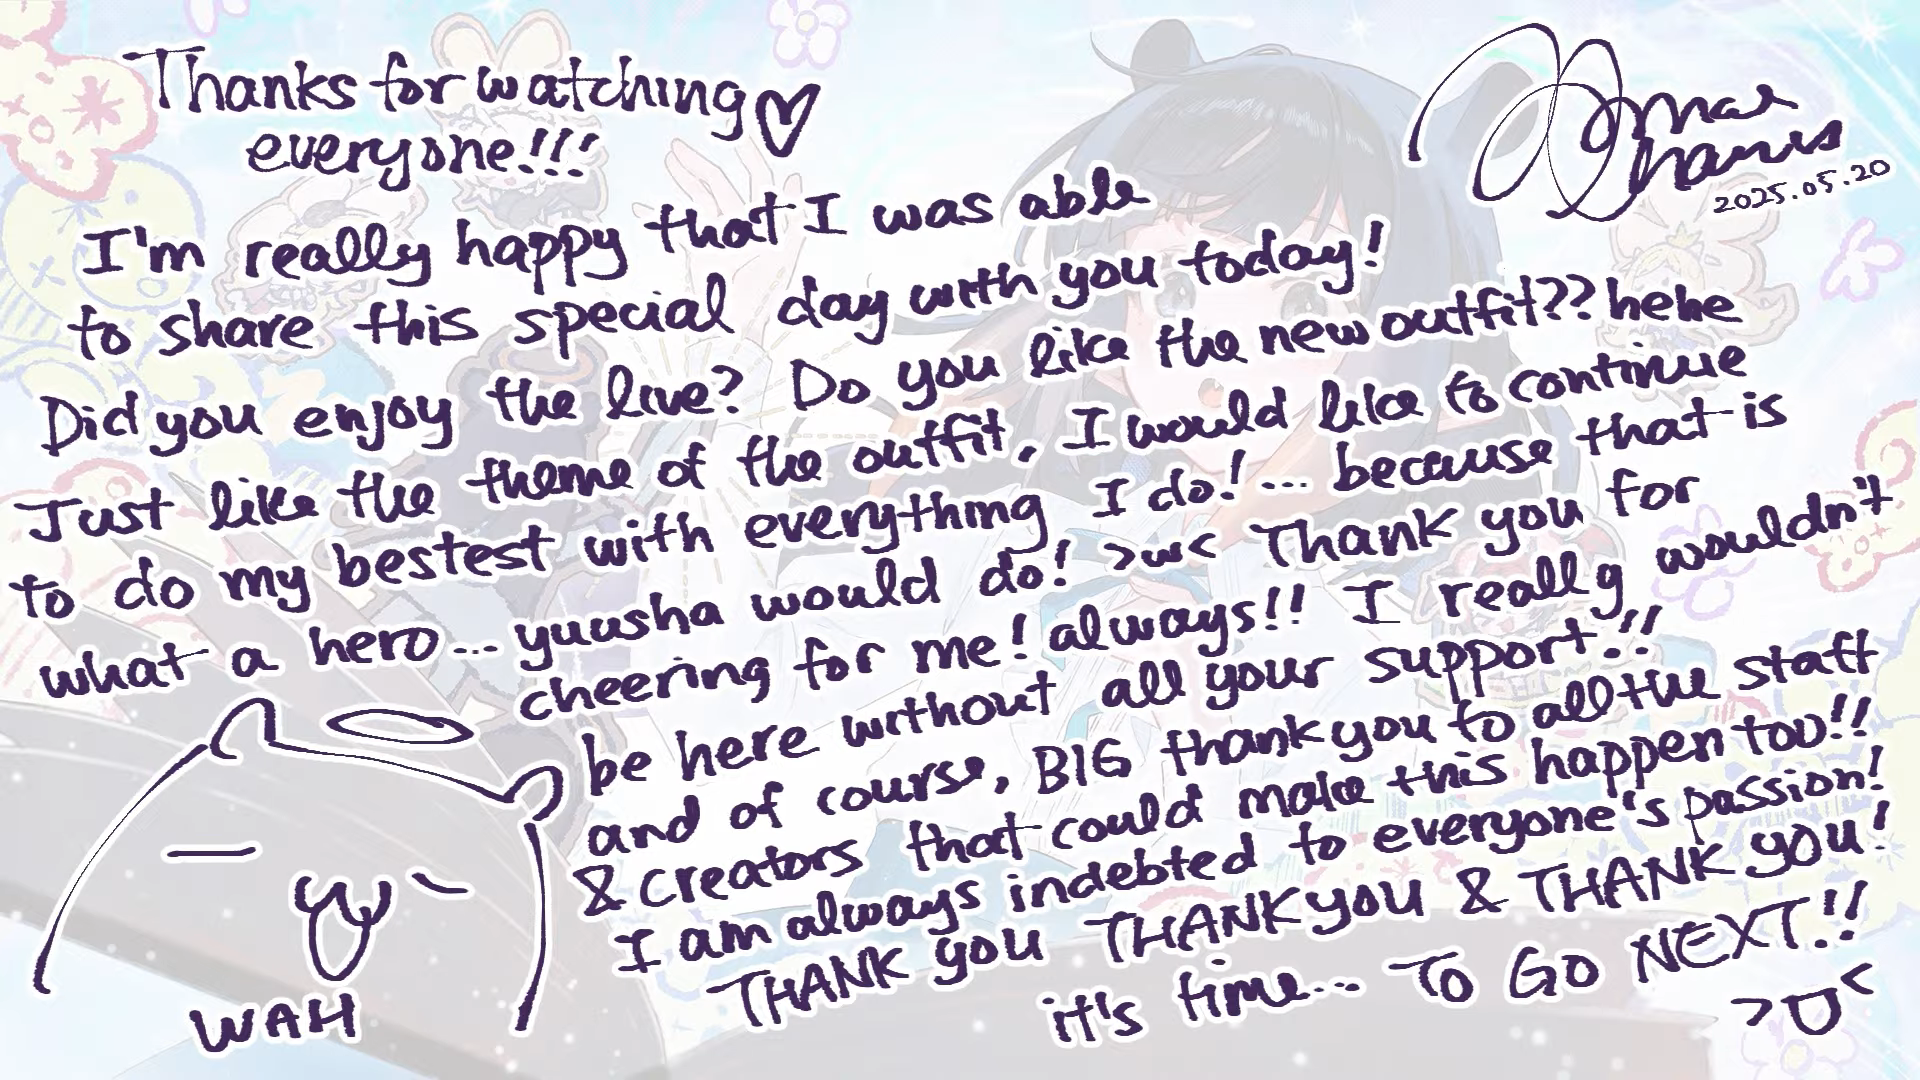 Thanks for watching♡
everyone!!!
I'm really happy that I was able
to share this special day with you today!
Did you enjoy the live? Do you like the new outfit?? hehe
Just like the theme of the outfit, I would like to continue
to do my bestest with everything I do!... because that is
what a hero... yuusha would do! >w< Thank you for
cheering for me! always!! I really wouldn't
be here without all your support!!
and of course, BIG thank you to all the staff
& creators that could make this happen too!!
I am always indebted to everyone's passion!
THANK you THANK you & THANK you!
it's time... TO GO NEXT!!
>O<
WAH
2025.05.20